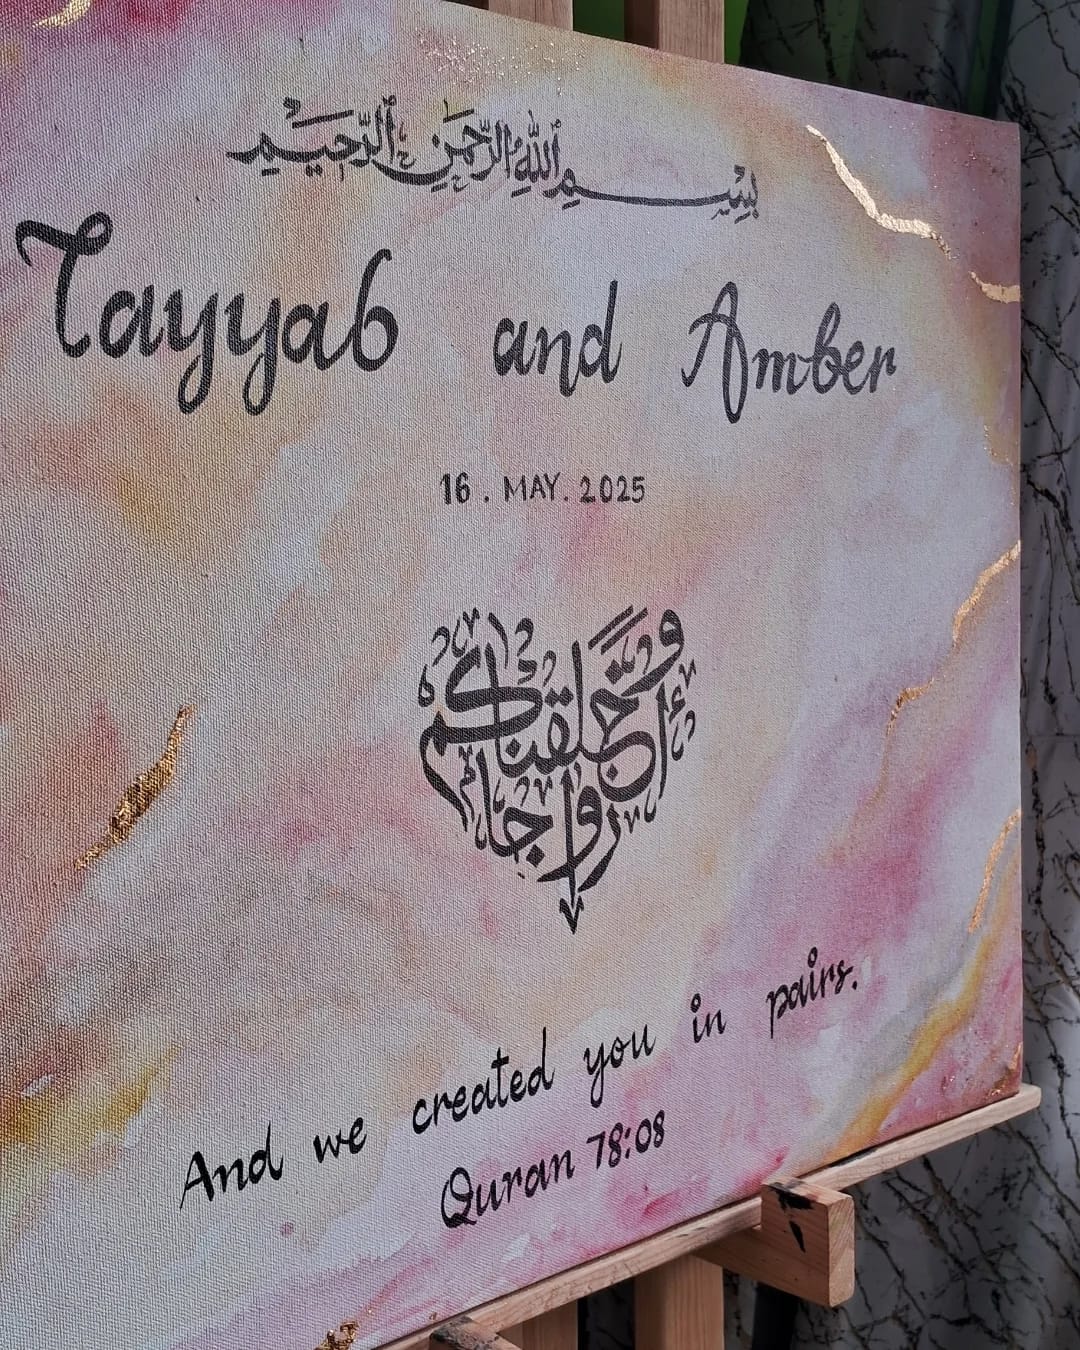 بِسْمِ ٱللَّهِ ٱلرَّحْمَٰنِ ٱلرَّحِيمِ
Tayyab and Amber
16 . MAY. 2025
وخلقناكم أزواجا
And we created you in pairs.
Quran 78:08